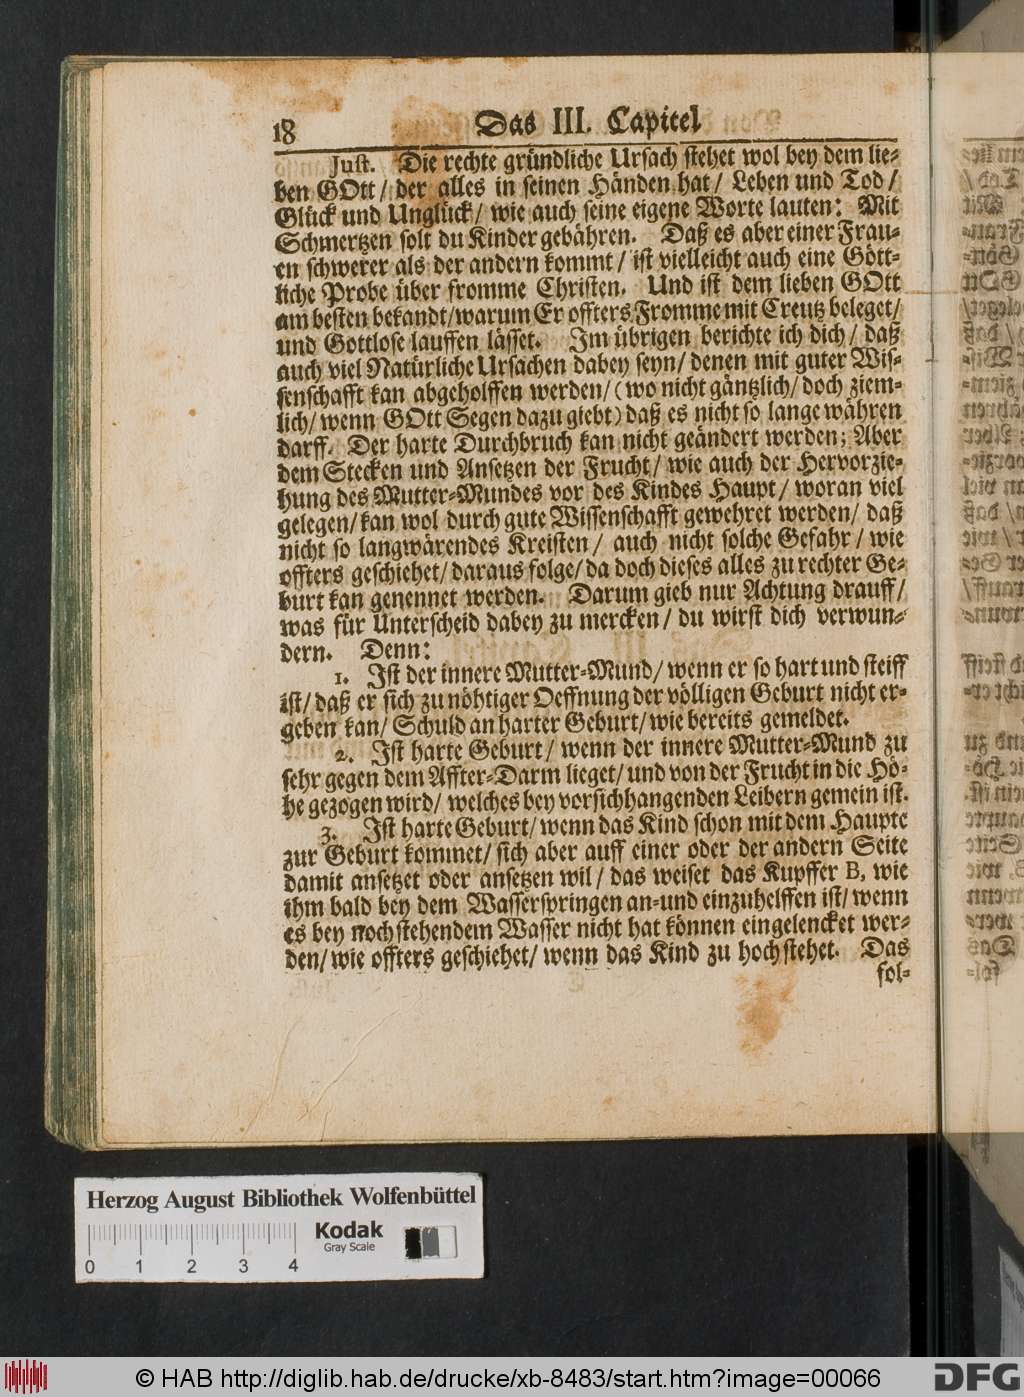 18 Das III. Capitel
Just. Die rechte gründliche Ursach stehet wol bey dem lie-
ben GOtt/ der alles in seinen Händen hat/ Leben und Tod/
Glück und Unglück/ wie auch seine eigene Worte lauten: Mit
Schmertzen solt du Kinder gebähren. Daß es aber einer Frau-
en schwerer als der andern kommt/ ist vielleicht auch eine Gött-
liche Probe über fromme Christen. Und ist dem lieben GOtt
am besten bekandt/warum Er offters Fromme mit Creutz beleget/
und Gottlose lauffen lässet. Im übrigen berichte ich dich/ daß
auch viel Natürliche Ursachen dabey seyn/ denen mit guter Wis-
senschafft kan abgeholffen werden/ (wo nicht gäntzlich/ doch ziem-
lich/ wenn GOtt Segen dazu giebt) daß es nicht so lange währen
darff. Der harte Durchbruch kan nicht geändert werden; Aber
dem Stecken und Ansetzen der Frucht/ wie auch der Hervorzie-
hung des Mutter-Mundes vor des Kindes Haupt/ woran viel
gelegen/kan wol durch gute Wissenschafft gewehret werden/ daß
nicht so langwärendes Kreisten/ auch nicht solche Gefahr/ wie
offters geschiehet/ daraus folge/ da doch dieses alles zu rechter Ge-
burt kan genennet werden. Darum gieb nur Achtung drauff/
was für Unterscheid dabey zu mercken/ du wirst dich verwun-
dern. Denn:
1. Ist der innere Mutter-Mund/ wenn er so hart und steiff
ist/ daß er sich zu nöhtiger Oeffnung der völligen Geburt nicht er-
geben kan/ Schuld an harter Geburt/ wie bereits gemeldet.
2. Ist harte Geburt/ wenn der innere Mutter-Mund zu
sehr gegen dem Affter-Darm lieget/ und von der Frucht in die Hö-
he gezogen wird/ welches bey vorsichhangenden Leibern gemein ist.
3. Ist harte Geburt/ wenn das Kind schon mit dem Haupte
zur Geburt kommet/ sich aber auff einer oder der andern Seite
damit ansetzet oder ansetzen wil/ das weiset das Kupffer B, wie
ihm bald bey dem Wasserspringen an-und einzuhelffen ist/ wenn
es bey noch stehendem Wasser nicht hat können eingelencket wer-
den/ wie offters geschiehet/ wenn das Kind zu hoch stehet. Das
fol-
Herzog August Bibliothek Wolfenbüttel
Kodak
Gray Scale
0 1 2 3 4
© HAB http://diglib.hab.de/drucke/xb-8483/start.htm?image=00066
DFG